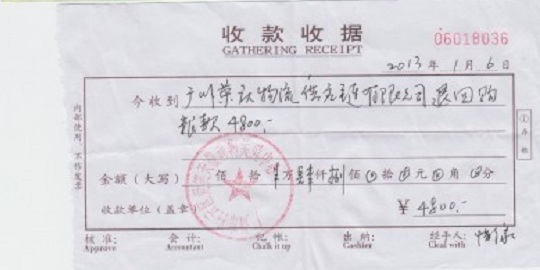 收款收据
GATHERING RECEIPT
06018036
2013年1月6日
今收到 广州 物流供应链有限公司退回购
款4800.-
金额（大写） 佰 拾 万 仟 佰 拾 元 角 分
收款单位（盖章） ¥ 4800.-
核准: 会计: 记帐: 出纳: 经手人:
Approve Accountant Chalk it up Cashier Cleal with
内部使用，不作发票
①存根